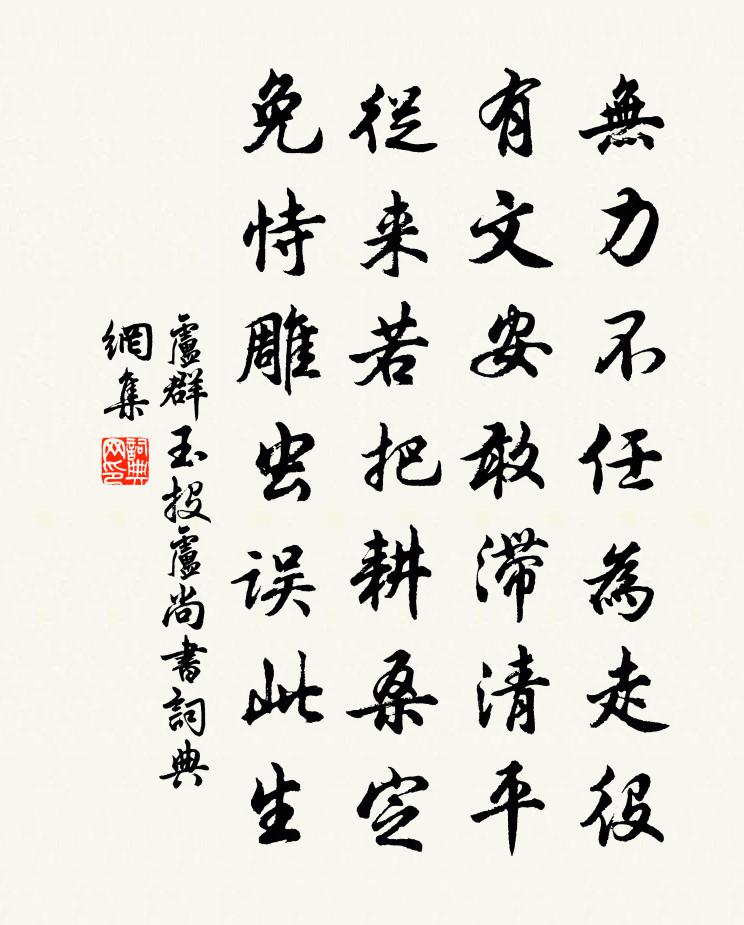 無力不任為走役
有文安敢滞清平
從来若把耕桑定
免恃雕虫误此生
盧群玉投盧尚書詞典
網集
詞典
网印